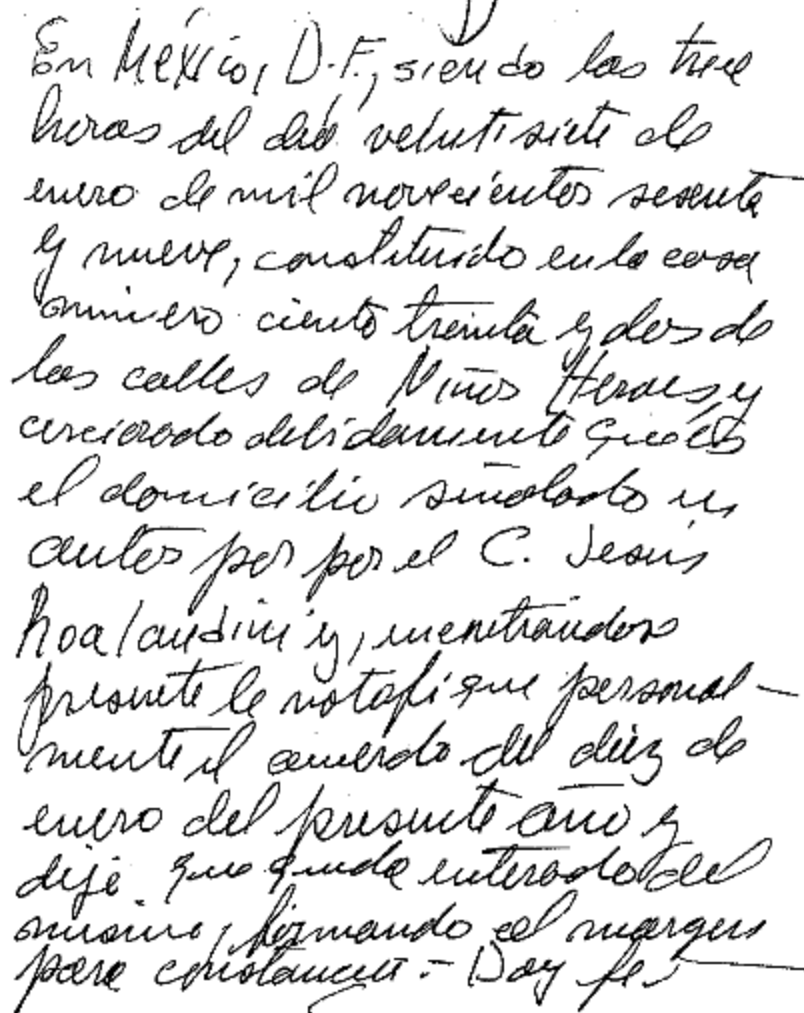 En México, D.F., siendo las trece
horas del día veintisiete de
enero de mil novecientos sesenta
y nueve, constituido en la casa
número ciento treinta y dos de
las calles de Niños Heroes, y
cerciorado debidamente que es
el domicilio señalado en
autos por por el C. Jesús
y, encontrandose
presente le notifique personal-
mente el acuerdo del diez de
enero del presente año y
dijé que queda enterado del
mismo, firmando al margen
para constancia.- Doy fe.